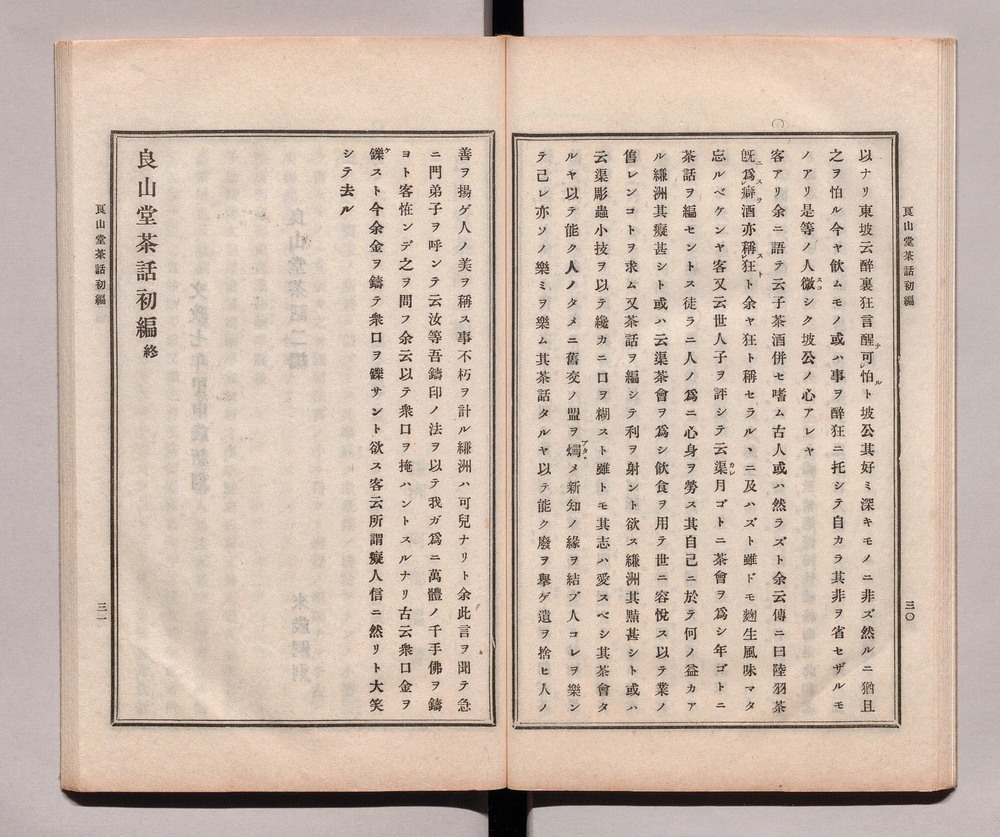 良山堂茶話初編
三〇
以ナリ東坡云醉裏狂言醒可怕ト坡公其好ミ深キモノニ非ズ然ルニ猶且
之ヲ怕ル今ヤ飮ムモノ或ハ事ヲ醉狂ニ托シテ自カラ其非ヲ省セザルモ
ノアリ是等ノ人微シク坡公ノ心アレヤ
客アリ余ニ語テ云子茶酒併セ嗜ム古人或ハ然ラズト余云傳ニ曰陸羽茶
旣爲癖酒亦稱狂ト余ヤ狂ト稱セラルヽニ及ハズト雖ドモ麹生風味マタ
忘ルベケンヤ客又云世人子ヲ評シテ云渠月ゴトニ茶會ヲ爲シ年ゴトニ
茶話ヲ編セントス徒ラニ人ノ爲ニ心身ヲ勞ス其自己ニ於テ何ノ益カア
ル縑洲其癡甚シト或ハ云渠茶會ヲ爲シ飮食ヲ用テ世ニ容悅ス以テ業ノ
售レンコトヲ求ム又茶話ヲ編シテ利ヲ射ント欲ス縑洲其黠甚シト或ハ
云渠彫蟲小技ヲ以テ纔カニ口ヲ糊スト雖トモ其志ハ愛スベシ其茶會タ
ルヤ以テ能ク人ノタメニ舊交ノ盟ヲ燭メ新知ノ緣ヲ結ブ人コレヲ樂ン
テ己レ亦ソノ樂ミヲ樂ム其茶話タルヤ以テ能ク廢ヲ擧ゲ遺ヲ捨ヒ人ノ
善ヲ揚ゲ人ノ美ヲ稱ス事不朽ヲ計ル縑洲ハ可兒ナリト余此言ヲ聞テ急
ニ門弟子ヲ呼ンテ云汝等吾鑄印ノ法ヲ以テ我ガ爲ニ萬體ノ千手佛ヲ鑄
ヨト客恠ンデ之ヲ問フ余云以テ衆口ヲ掩ハントスルナリ古云衆口金ヲ
鑠スト今余金ヲ鑄テ衆口ヲ鑠サント欲ス客云所謂癡人信ニ然リト大笑
シテ去ル
良山堂茶話初編終
良山堂茶話初編
三一